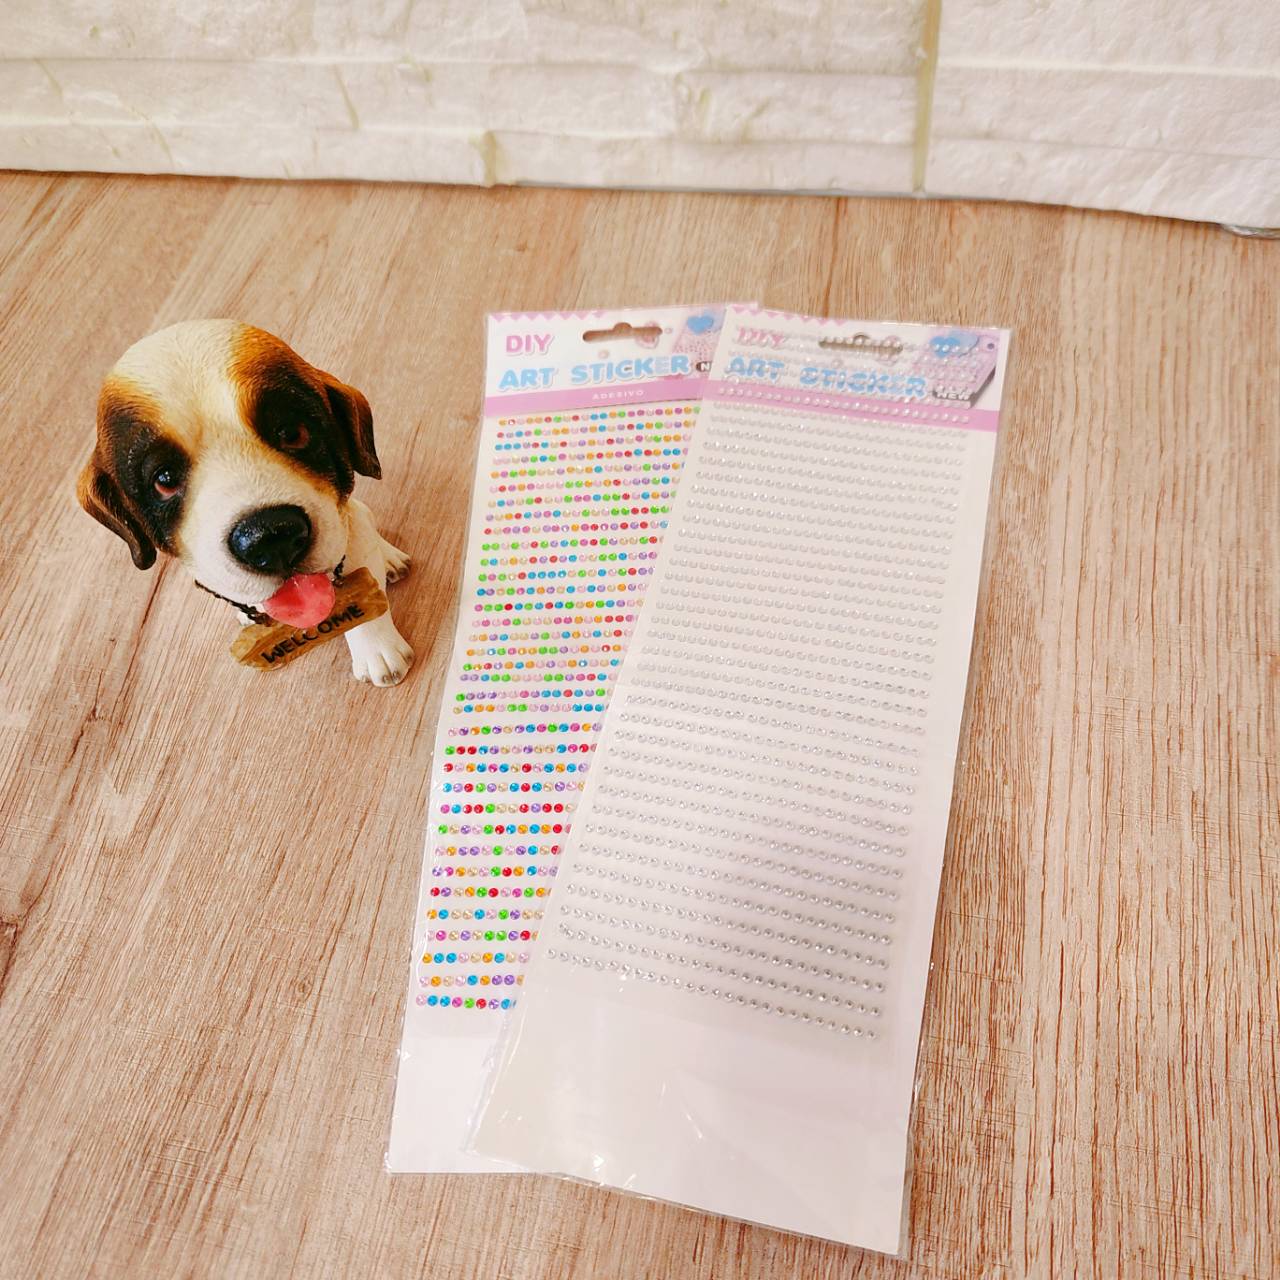 DIY
ART STICKER
ADESIVO
DIY
ART STICKER
NEW
WELCOME